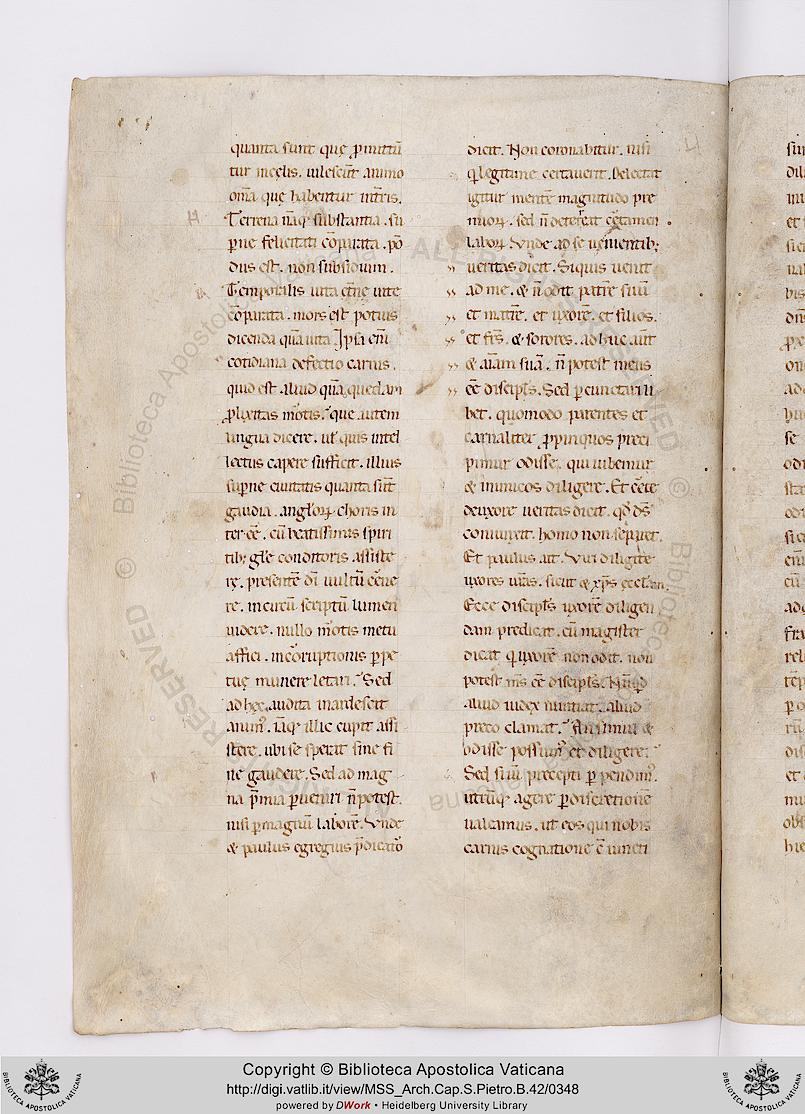 quanta sunt que ꝓmittũ
tur incelis. uilescũt animo
om̃a que habentur int̃ris.
Terrena nãq; substantia. su
ꝑne felicitati cõparata. põ
dus est. non subsidium.
Temporalis uita et̃ne uite
cõparata. mors est potius
dicenda quã uita. Ipsa eni
cotidiana defectio carnis.
quid est aliud quã quedam
ꝓlixitas mortis. que autem
lingua dicere. uł quis intel
lectus capere sufficit. illius
suꝑne ciuitatis quanta sũt
gaudia. anglorꝝ choris in
ter eẽ. cũ beatissimis spiri
tib; głe conditoris assiste
rę. presentẽ dĩ uultũ cerne
re. incircũ scriptũ lumen
uidere. nullo mortis metu
affici. incorruptionis ꝑpe
tuę munere letari. Sed
ad hęc audita inardescit
animꝰ. iãq; illic cupit assi
stere. ubi se sperat sine fi
ne gaudere. Sed ad mag
na p̃mia ꝑuenire ñ potest.
nisi ꝑ magnũ laborẽ. Vnde
& paulus egregius p̃dicator
dicit. Non coronabitur. nisi
q̇ legitime certauerit. Delectat
igitur mentẽ magnitudo pre
miorꝝ. sed ñ deterreat certamen
laborꝝ. Vnde ad se uenientib;
ueritas dicit. Siquis uenit
ad me. & ñ odit patrẽ suũ
et matrẽ. et uxorẽ. et filios.
et fr̃s. & sorores. ad huc aũt
& aĩam suã. ñ potest meus
eẽ discipłs. Sed ꝑcunctari li
bet. quomodo parentes et
carnaliter ꝓpinquos preci
pimur odisse. qui iubemur
& inimicos diligere. Et certe
deuxore ueritas dicit. qđ ds̃
coniunxit. homo non separet.
Et paulus ait. Viri diligite
uxores ur̃as. sicut & xp̃s ęcclam.
Ecce discipłs uxorẽ diligen
dam predicat. cũ magister
dicat q̇ uxorẽ non odit. non
potest ms̃ eẽ discipłs. Nũquid
aliud iudex nuntiat. aliud
preco clamat. An simul &
odisse possumꝰ et diligere.
Sed si uim precepti ꝑpendimꝰ.
utrũq; agere ꝑ discretionẽ
ualeamus. ut eos qui nobis
carnis cognatione c̃iuncti
Copyright © Biblioteca Apostolica Vaticana
http://digi.vatlib.it/view/MSS_Arch.Cap.S.Pietro.B.42/0348
powered by DWork • Heidelberg University Library